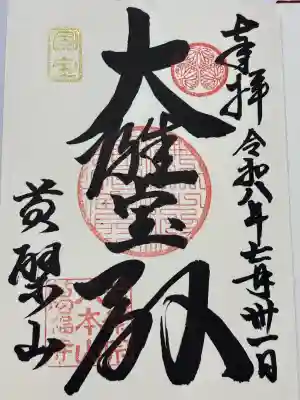 奉拝
令和八年七月卅一日
大雄宝殿
国宝
黄檗山
本山
萬福寺